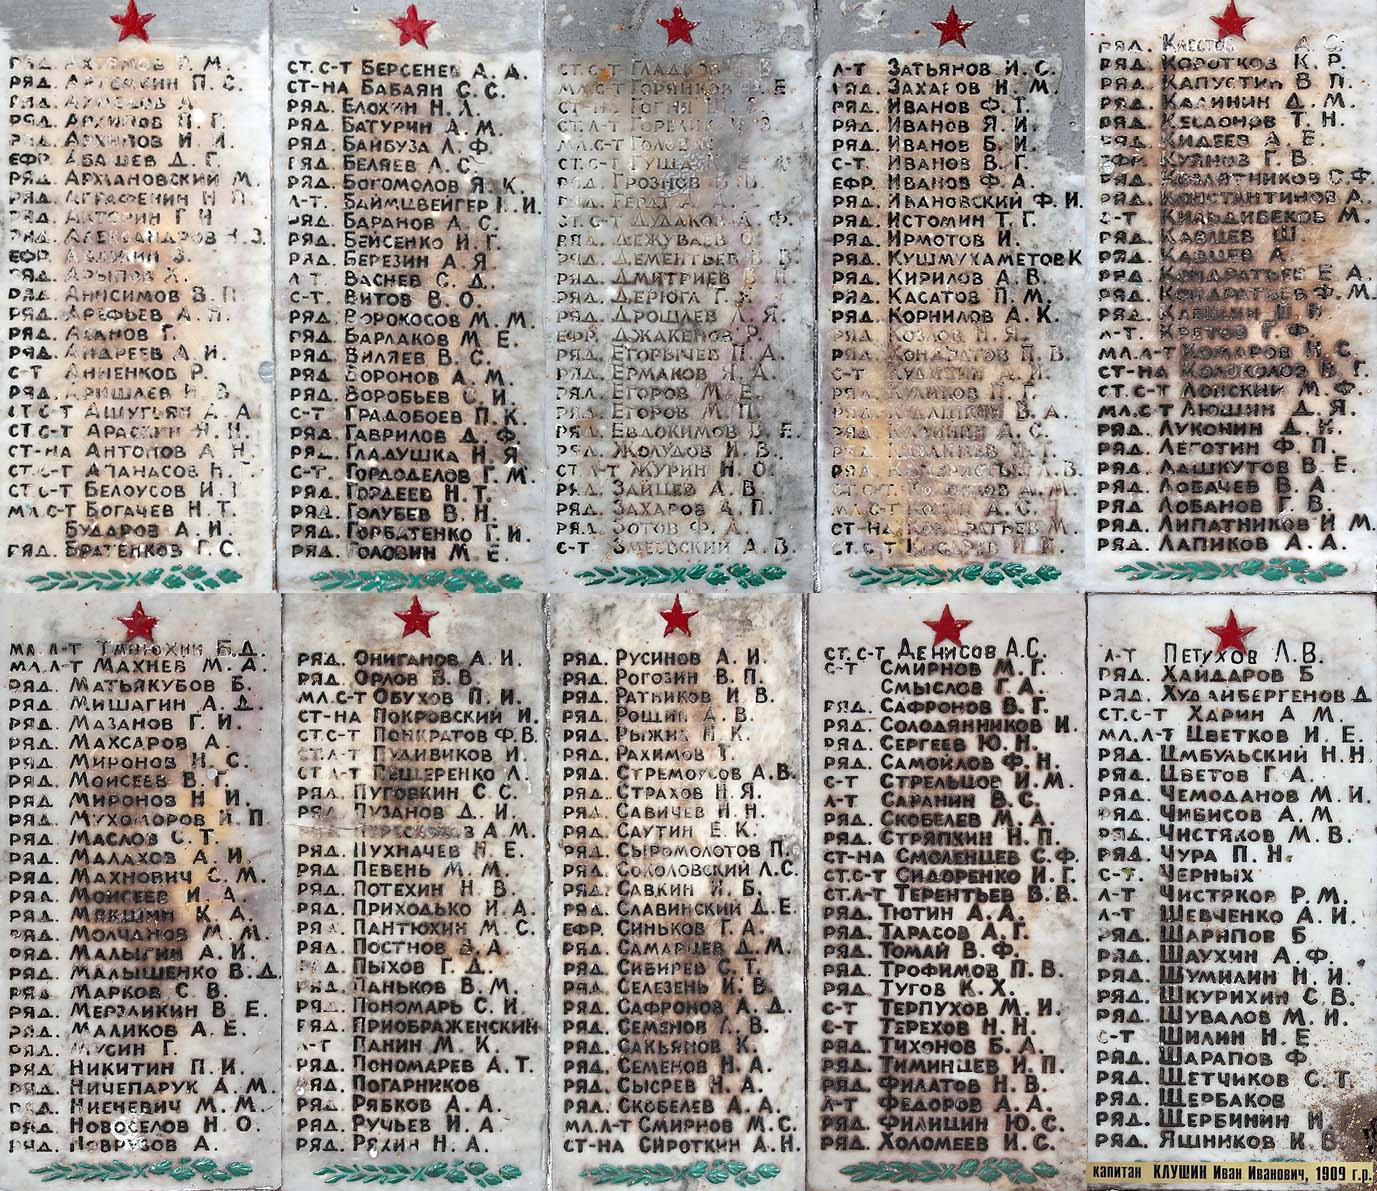 РЯД. АХТЯМОВ Г. М.
РЯД. АРТЕМКИН П. С.
РЯД.
РЯД. АРХИПОВ Н. Г.
РЯД. АРХИПОВ И. И.
ЕФР. АБАШЕВ Д. Г.
РЯД. АРХАНОВСКИЙ М.
РЯД. АГРАФЕНИН Н. П.
РЯД.
РЯД. АЛЕКСАНДРОВ Н. З.
ЕФР.
РЯД. АРЫПОВ Х.
РЯД. АНИСИМОВ В. П.
РЯД. АРЕФЬЕВ А. П.
РЯД. АСАНОВ Г.
РЯД. АНДРЕЕВ А. И.
С-Т АННЕНКОВ Р.
РЯД. АРИШАЕВ И. В.
СТ.С-Т АШУГЬЯН А. А
СТ.С-Т АРАСКИН Я. Н.
СТ-НА АНТОНОВ А. Н.
СТ.С-Т АПАНАСОВ Н. Г.
СТ С-Т БЕЛОУСОВ И.
МЛ.С-Т БОГАЧЕВ Н. Т.
БУДАРОВ А. И.
РЯД. БРАТЕНКОВ Г. С.
СТ.С-Т БЕРСЕНЕВ А. Д.
СТ-НА БАБАЯН С. С.
РЯД. БЛОХИН Н. Л.
РЯД. БАТУРИН А. М.
РЯД. БАЙБУЗА Л. Ф.
РЯД. БЕЛЯЕВ Л. С.
РЯД. БОГОМОЛОВ Я. К.
Л-Т БАЙМЦВЕЙГЕР И.
РЯД. БАРАНОВ А. С.
РЯД. БЕЙСЕНКО И. Г.
РЯД. БЕРЕЗИН А. Я
Л-Т ВАСНЕВ С. Д.
С-Т ВИТОВ В. О.
РЯД. ВОРОКОСОВ М. М.
РЯД. ВАРЛАКОВ М. Е.
РЯД. ВИЛЯЕВ В. С.
РЯД. ВОРОНОВ А. М.
РЯД. ВОРОБЬЕВ С. И.
С-Т ГРАДОБОЕВ П. К.
РЯД. ГАВРИЛОВ Д. Ф.
РЯД. ГЛАДУШКА Н. Я
С-Т. ГОРДОДЕЛОВ Г. М.
РЯД. ГОРДЕЕВ Н. Т.
РЯД. ГОЛУБЕВ В. Н.
РЯД. ГОРБАТЕНКО Г. И.
РЯД. ГОЛОВИН М. Е.
СТ.С-Т ГЛАДКОВ В.
МЛ.С-Т ГОРЯНКОВ Е.
СТ-НА ГОГНЯ
СТ.Л-Т ГОРЕЛИК
МЛ.С-Т
СТ.С-Т ГУЩА
РЯД. ГРОЗНОВ
РЯД. ГЕРДТ А. А.
СТ.С-Т ДУДАКОВ А. Ф.
РЯД. ДЕЖУВАЕВ О.
РЯД. ДЕМЕНТЬЕВ В.
РЯД. ДМИТРИЕВ В. П
РЯД. ДЕРЮГА Г. Я
РЯД. ДРОШЛЕВ Л. Я.
ЕФР. ДЖАКЕНОВ Р.
РЯД. ЕГОРЫЧЕВ П. А.
РЯД. ЕРМАКОВ Я. А.
РЯД. ЕГОРОВ М. Е.
РЯД. ЕГОРОВ М. П.
РЯД. ЕВДОКИМОВ В. Е.
РЯД. ЖОЛУДОВ И. В.
СТ Л-Т ЖУРИН Н. О.
РЯД. ЗАЙЦЕВ А. В.
РЯД. ЗАХАРОВ А. П.
РЯД. ЗОТОВ Ф. А.
С-Т ЗМЕЕВСКИЙ А. В.
Л-Т ЗАТЬЯНОВ И. С.
РЯД. ЗАХАРОВ Н. М.
РЯД. ИВАНОВ Ф. Т.
РЯД. ИВАНОВ Я. И.
РЯД. ИВАНОВ Б. И
С-Т. ИВАНОВ В. Г.
ЕФР. ИВАНОВ Ф. А.
РЯД. ИВАНОВСКИЙ Ф. И.
РЯД. ИСТОМИН Т. Г.
РЯД. ИРМОТОВ И.
РЯД. КУШМУХАМЕТОВ К
РЯД. КИРИЛОВ А. В.
РЯД. КАСАТОВ П. М.
РЯД. КОРНИЛОВ А. К.
РЯД. КОЗЛОВ П. Я.
РЯД. КОНДРАТОВ П. В.
С-Т
РЯД. КУЛИКОВ П. Г.
РЯД. КУДАШКИН В. А.
РЯД. КАЛИНИН А. С.
РЯД.
РЯД. В.
СТ.С-Т. А. М.
МЛ.С-Т А. С.
СТ-НА КОНДРАТЬЕВ М.
СТ.С-Т
РЯД. КЛЕСТОВ А. С.
РЯД. КОРОТКОВ К. Р.
РЯД. КАПУСТИН В. П.
РЯД. КАЛИНИН Д. М.
РЯД. КЕСДОНОВ Т. Н.
РЯД. КИДЕЕВ А. Е.
ЕФР. КУЯНОВ Г. В.
РЯД. КОЗЛЯТНИКОВ С.Ф.
РЯД. КОНСТАНТИНОВ А.
С-Т КИЛЬДИБЕКОВ М.
РЯД. КАВЦЕВ Ш.
РЯД. КАВЦЕВ А.
РЯД. КОНДРАТЬЕВ Е. А.
РЯД. КОНДРАТЬЕВ Ф. М.
РЯД. КЛЕШНИ П. И
Л-Т. КРЕТОВ Г. Ф.
МЛ.Л-Т КОМАРОВ Н. С.
СТ-НА КОЛОКОЛОВ В. Г.
СТ.С-Т ЛОНСКИЙ М. Ф.
МЛ.С-Т ЛЮШИН Д. Я.
РЯД. ЛУКОНИН Д. И.
РЯД. ЛЕГОТИН Ф. П.
РЯД. ЛАШКУТОВ В. Е.
РЯД. ЛОБАЧЕВ В. А.
РЯД. ЛОБАНОВ Г. В.
РЯД. ЛИПАТНИКОВ И М.
РЯД. ЛАПИКОВ А. А.
МЛ.Л-Т Б. Д.
МЛ.Л-Т МАХНЕВ М. А.
РЯД. МАТЬЯКУБОВ Б.
РЯД. МИШАГИН А. Д.
РЯД. МАЗАНОВ Г. И.
РЯД. МАХСАРОВ А.
РЯД. МИРОНОВ И. С.
РЯД. МОИСЕЕВ В. Г.
РЯД. МИРОНОВ Н И.
РЯД. МУХОМОРОВ И. П
РЯД. МАСЛОВ С. Т.
РЯД. МАЛАХОВ А. И.
РЯД. МАХНОВИЧ С. М.
РЯД. МОИСЕЕВ И. А.
РЯД. МЯКШИН К. А.
РЯД. МОЛЧАНОВ М. М.
РЯД. МАЛЫГИН А. И.
РЯД. МАЛЫШЕНКО В. Д.
РЯД. МАРКОВ С. В.
РЯД. МЕРЗЛИКИН В. Е.
РЯД. МАЛИКОВ А. Е.
РЯД. МУСИН Г.
РЯД. НИКИТИН П. И.
РЯД. НИЧЕПАРУК А. М.
РЯД. НИЕНЕВИЧ М. М.
РЯД. НОВОСЕЛОВ Н. О.
РЯД. НОВРУЗОВ А.
РЯД. ОНИГАНОВ А. И.
РЯД. ОРЛОВ В. В.
МЛ.С-Т ОБУХОВ П. И.
СТ-НА ПОКРОВСКИЙ И.
СТ.С-Т ПОНКРАТОВ Ф. В.
СТ.Л-Т ПУДИВИКОВ И.
СТ.Л-Т ПЕЩЕРЕНКО Л.
РЯД. ПУГОВКИН С. С.
РЯД. ПУЗАНОВ Д. И.
РЯД. ПЕРЕСКОКОВ А. М.
РЯД. ПУХНАЧЕВ Н. Е.
РЯД. ПЕВЕНЬ М. М.
РЯД. ПОТЕХИН Н. В.
РЯД. ПРИХОДЬКО И. А.
РЯД. ПАНТЮХИН М. С.
РЯД. ПОСТНОВ В. А.
РЯД. ПЫХОВ Г. Д.
РЯД. ПАНЬКОВ В. М.
РЯД. ПОНОМАРЬ С. И.
РЯД. ПРИОБРАЖЕНСКИЙ
Л-Т ПАНИН М. К.
РЯД. ПОНОМАРЕВ А. Т.
РЯД. ПОГАРНИКОВ
РЯД. РЯБКОВ А. А.
РЯД. РУЧЬЕВ И. А.
РЯД. РЯХИН Н. А.
РЯД. РУСИНОВ А. И.
РЯД. РОГОЗИН В. П.
РЯД. РАТНИКОВ И. В.
РЯД. РОЩИН А. В.
РЯД. РЫЖИХ Н. К.
РЯД. РАХИМОВ Т.
РЯД. СТРЕМОУСОВ А. В.
РЯД. СТРАХОВ Н. Я.
РЯД. САВИЧЕВ Н. Н.
РЯД. САУТИН Е. К.
РЯД. СЫРОМОЛОТОВ П.
РЯД. СОКОЛОВСКИЙ Л. С.
РЯД. САВКИН И. Б.
РЯД. СЛАВИНСКИЙ Д. Е.
ЕФР. СИНЬКОВ Г. А.
РЯД. САМАРЦЕВ Д. М.
РЯД. СИБИРЕВ С. Т.
РЯД. СЕЛЕЗЕНЬ И. В.
РЯД. САФРОНОВ А. Д.
РЯД. СЕМЕНОВ Л. В.
РЯД. САКЬЯНОВ К.
РЯД. СЕМЕНОВ Н. А.
РЯД. СЫСРЕВ Н. А.
РЯД. СКОБЕЛЕВ А. А.
МЛ.Л-Т СМИРНОВ М. С.
СТ-НА СИРОТКИН А. Н.
СТ.С-Т ДЕНИСОВ А. С.
С-Т СМИРНОВ М. Г.
СМЫСЛОВ Г. А.
РЯД. САФРОНОВ В. Г.
РЯД. СОЛОДЯННИКОВ И.
РЯД. СЕРГЕЕВ Ю. Н.
РЯД. САМОЙЛОВ Ф. Н.
С-Т СТРЕЛЬЦОВ И. М.
Л-Т САРАНИН В. С.
РЯД. СКОБЕЛЕВ М. А.
РЯД. СТРЯПКИН Н. П.
СТ-НА СМОЛЕНЦЕВ С. Ф.
СТ.С-Т СИДОРЕНКО И. Г.
СТ.Л-Т ТЕРЕНТЬЕВ В. В.
РЯД. ТЮТИН А. А.
РЯД. ТАРАСОВ А. Г.
РЯД. ТОМАЙ В. Ф.
РЯД. ТРОФИМОВ П. В.
РЯД. ТУГОВ К. Х.
С-Т ТЕРПУХОВ М. И.
С-Т ТЕРЕХОВ Н. Н.
РЯД. ТИХОНОВ Б. А.
РЯД. ТИМИНЦЕВ И. П.
РЯД. ФИЛАТОВ Н. В.
Л-Т ФЕДОРОВ А. А.
РЯД. ФИЛИЦИН Ю. С.
РЯД. ХОЛОМЕЕВ И. С.
Л-Т ПЕТУХОВ Л. В.
РЯД. ХАЙДАРОВ Б
РЯД. ХУДАЙБЕРГЕНОВ Д
СТ.С-Т ХАРИН А М.
МЛ.Л-Т ЦВЕТКОВ И. Е.
РЯД. ЦМБУЛЬСКИЙ Н. Н
РЯД. ЦВЕТОВ Г. А.
РЯД. ЧЕМОДАНОВ М. И.
РЯД. ЧИБИСОВ А. М
РЯД. ЧИСТЯКОВ М. В.
РЯД. ЧУРА П. Н.
С-Т. ЧЕРНЫХ
Л-Т ЧИСТЯКОВ Р. М.
Л-Т ШЕВЧЕНКО А. И.
РЯД. ШАРИПОВ Б
РЯД. ШАУХИН А. Ф.
РЯД. ШУМИЛИН Н. И.
РЯД. ШКУРИХИН С. В.
РЯД. ШУВАЛОВ М. И.
С-Т ШИЛИН Н. Е.
РЯД. ШАРАПОВ Ф.
РЯД. ЩЕТЧИКОВ С. Т
РЯД. ЩЕРБАКОВ
РЯД. ЩЕРБИНИН И.
РЯД. ЯШНИКОВ И. В
капитан КЛУШИН Иван Иванович, 1909 г.р.